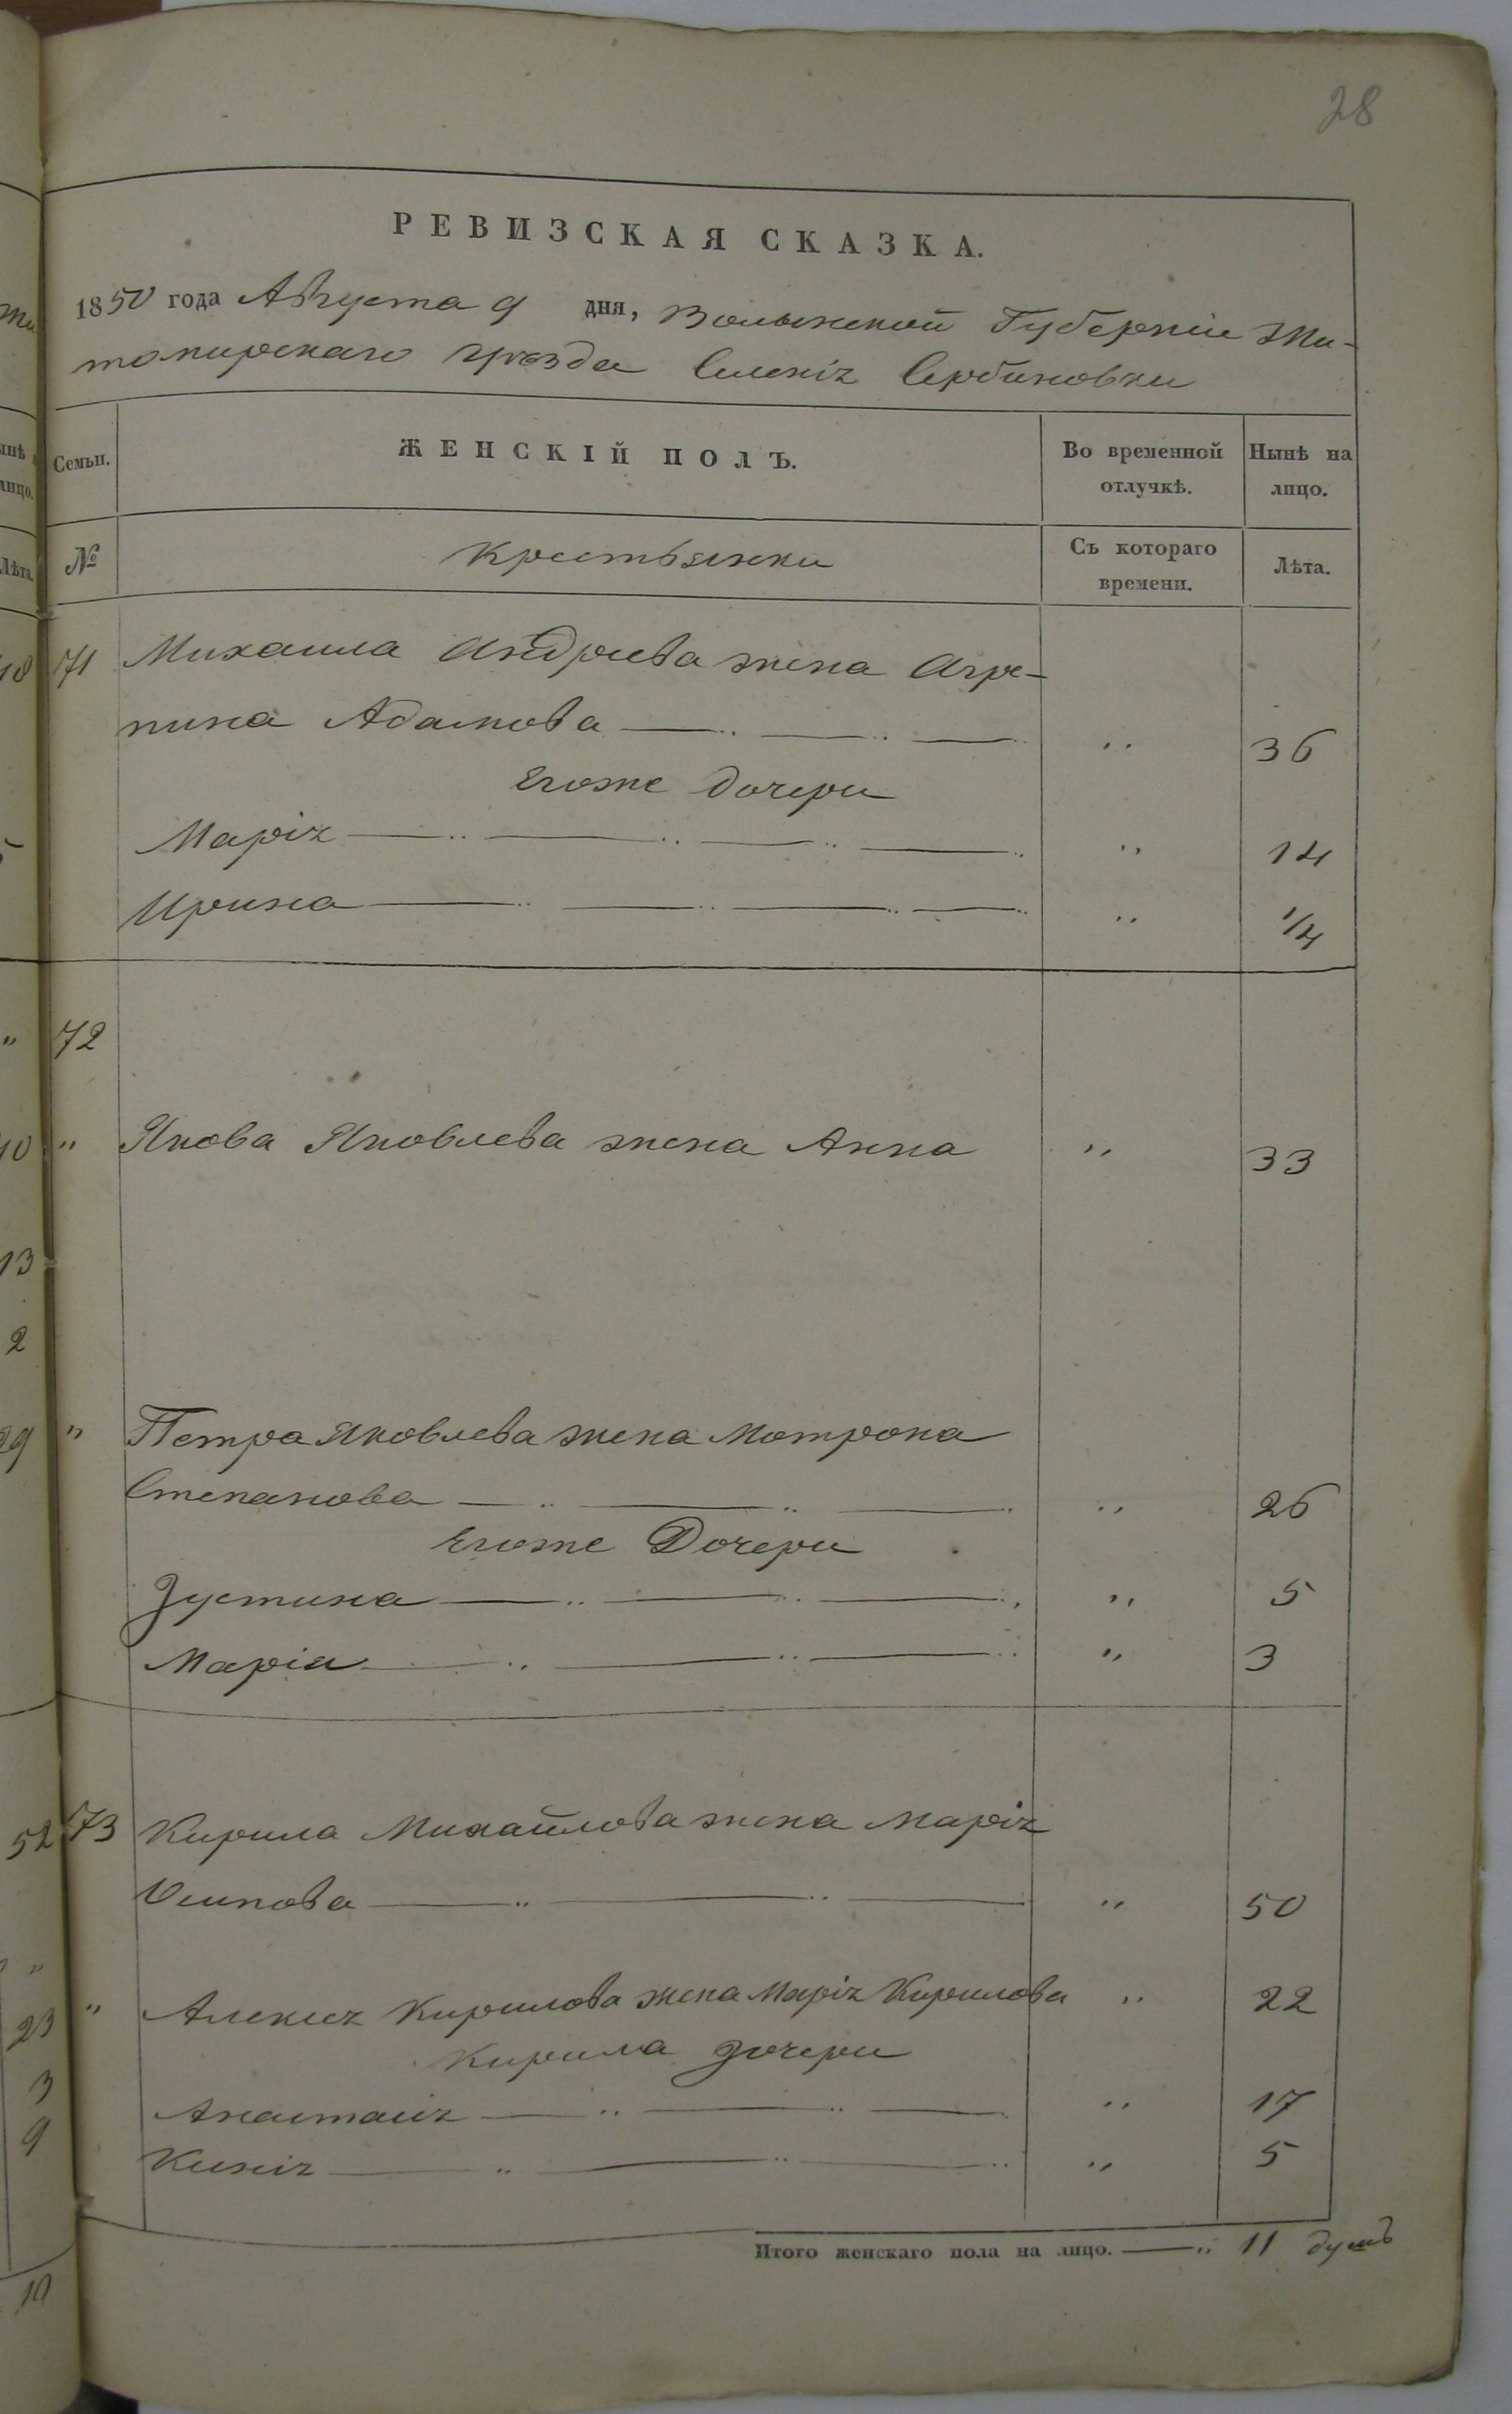 28
РЕВИЗСКАЯ СКАЗКА.
1850 года Августа 9 дня, Волынской Губернiи Жи-
томирскаго уѣзда Селенiя Сербиновки
Семьи. ЖЕНСКІЙ ПОЛЪ. Во временной отлучкѣ. Нынѣ на лицо.
№ Крестьянки Съ котораго времени. Лѣта.
71 Михаила Андреева жена Агре-
пина Адамова „ 36
Егоже дочери
Марiя „ 14
Ирина „ 1/4
72
„ Якова Яковлева жена Анна „ 33
„ Петра Яковлева жена Мотрона
Степанова „ 26
Егоже Дочери
Іустина „ 5
Марiя „ 3
73 Кирила Михайлова жена Марiя
Осипова „ 50
„ Алексея Кирилова жена Марiя Кирилова „ 22
Кирила дочери
Анастасiя „ 17
Ксенiя „ 5
Итого женскаго пола на лицо. 11 душъ